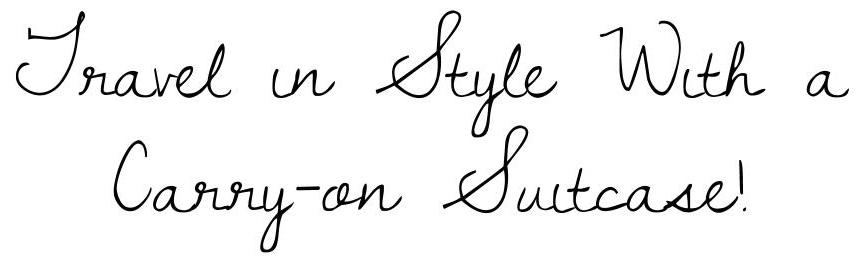 Travel in Style With a
Carry-on Suitcase!